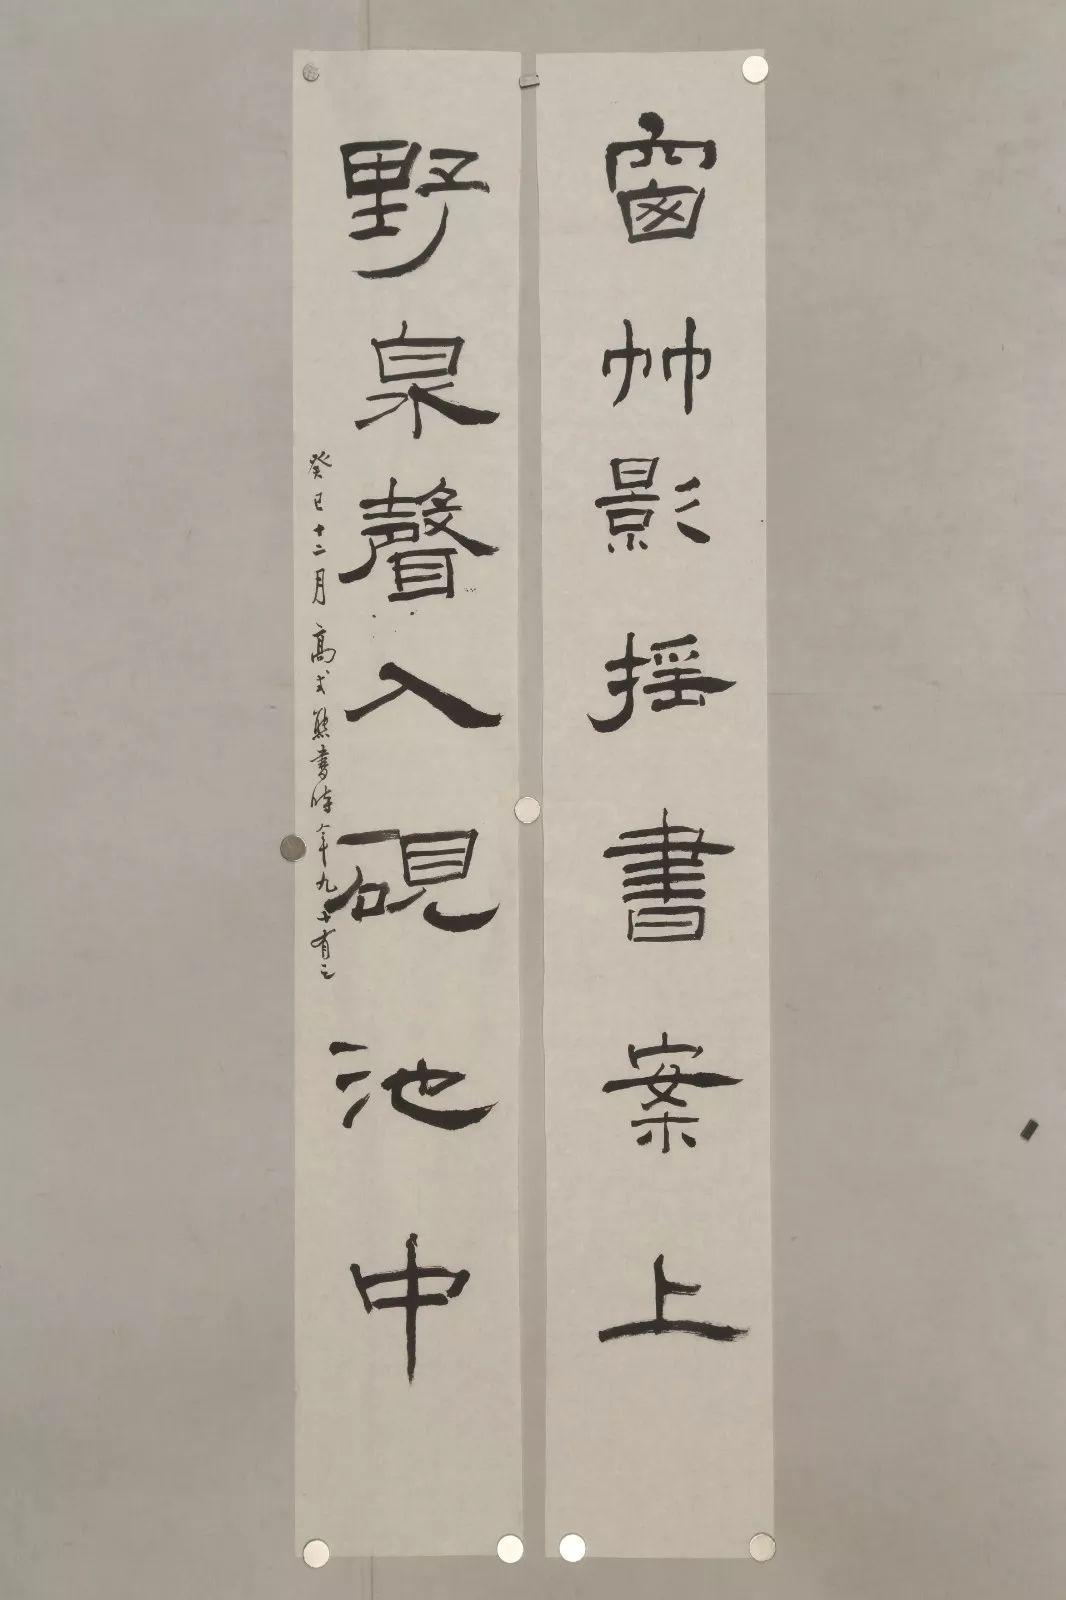 窗艸影摇書案上
野泉聲入硯池中
癸巳十二月高式熊書時年九十有三